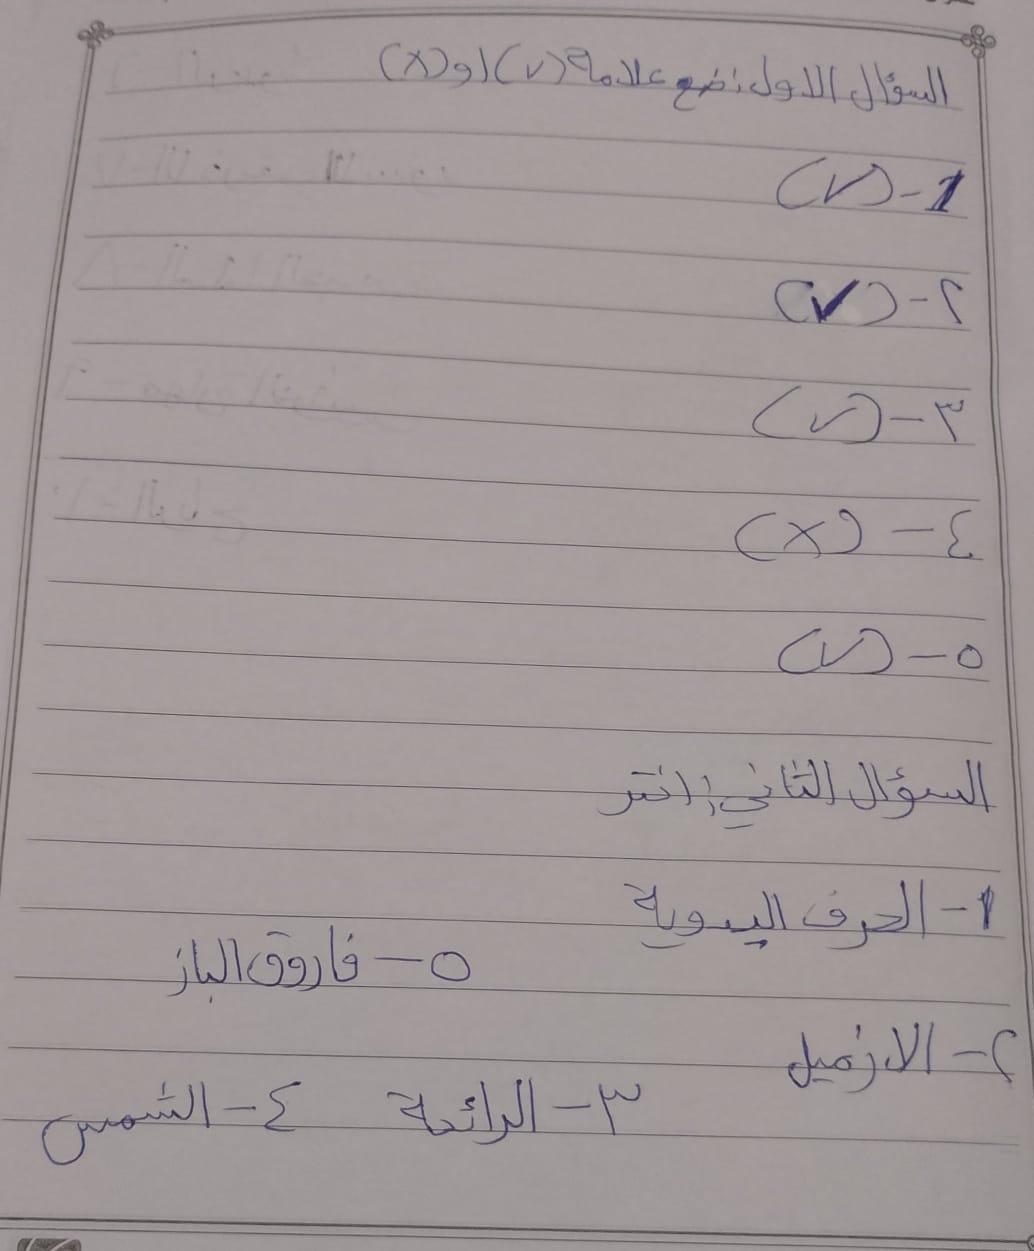 السؤال الاول: ضع علامة (√) او (x)
1- (√)
٢- (√)
٣- (√)
٤- (x)
٥- (√)
السؤال الثاني: اختر
١- الحرف اليدوية
٥- فاروق الباز
٢- الازميل
٣- الرائحة ٤- الشمس